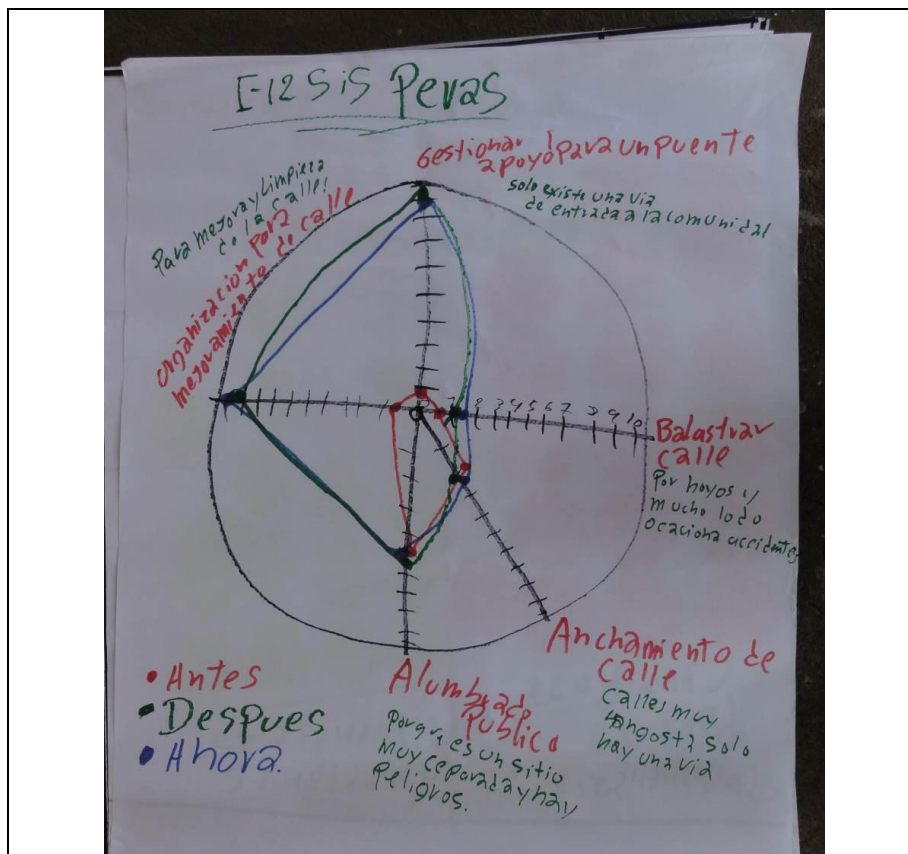 E-12 SiS Peras
Gestionar
apoyo para un puente
solo existe una via
de entrada a la comunidad
Para mejora y Limpieza
de la calle!
organizacion para
mejoramiento de calle
0 1 2 3 4 5 6 7 8 9 10
Balastrar
calle
Por hoyos y
mucho lodo
ocaciona accidentes
Anchamiento de
calle
Calles muy
angosta solo
hay una via
Alumbrado
Publico
Porque es un sitio
muy ceparada y hay
Peligros.
• Antes
• Despues
• Ahora.